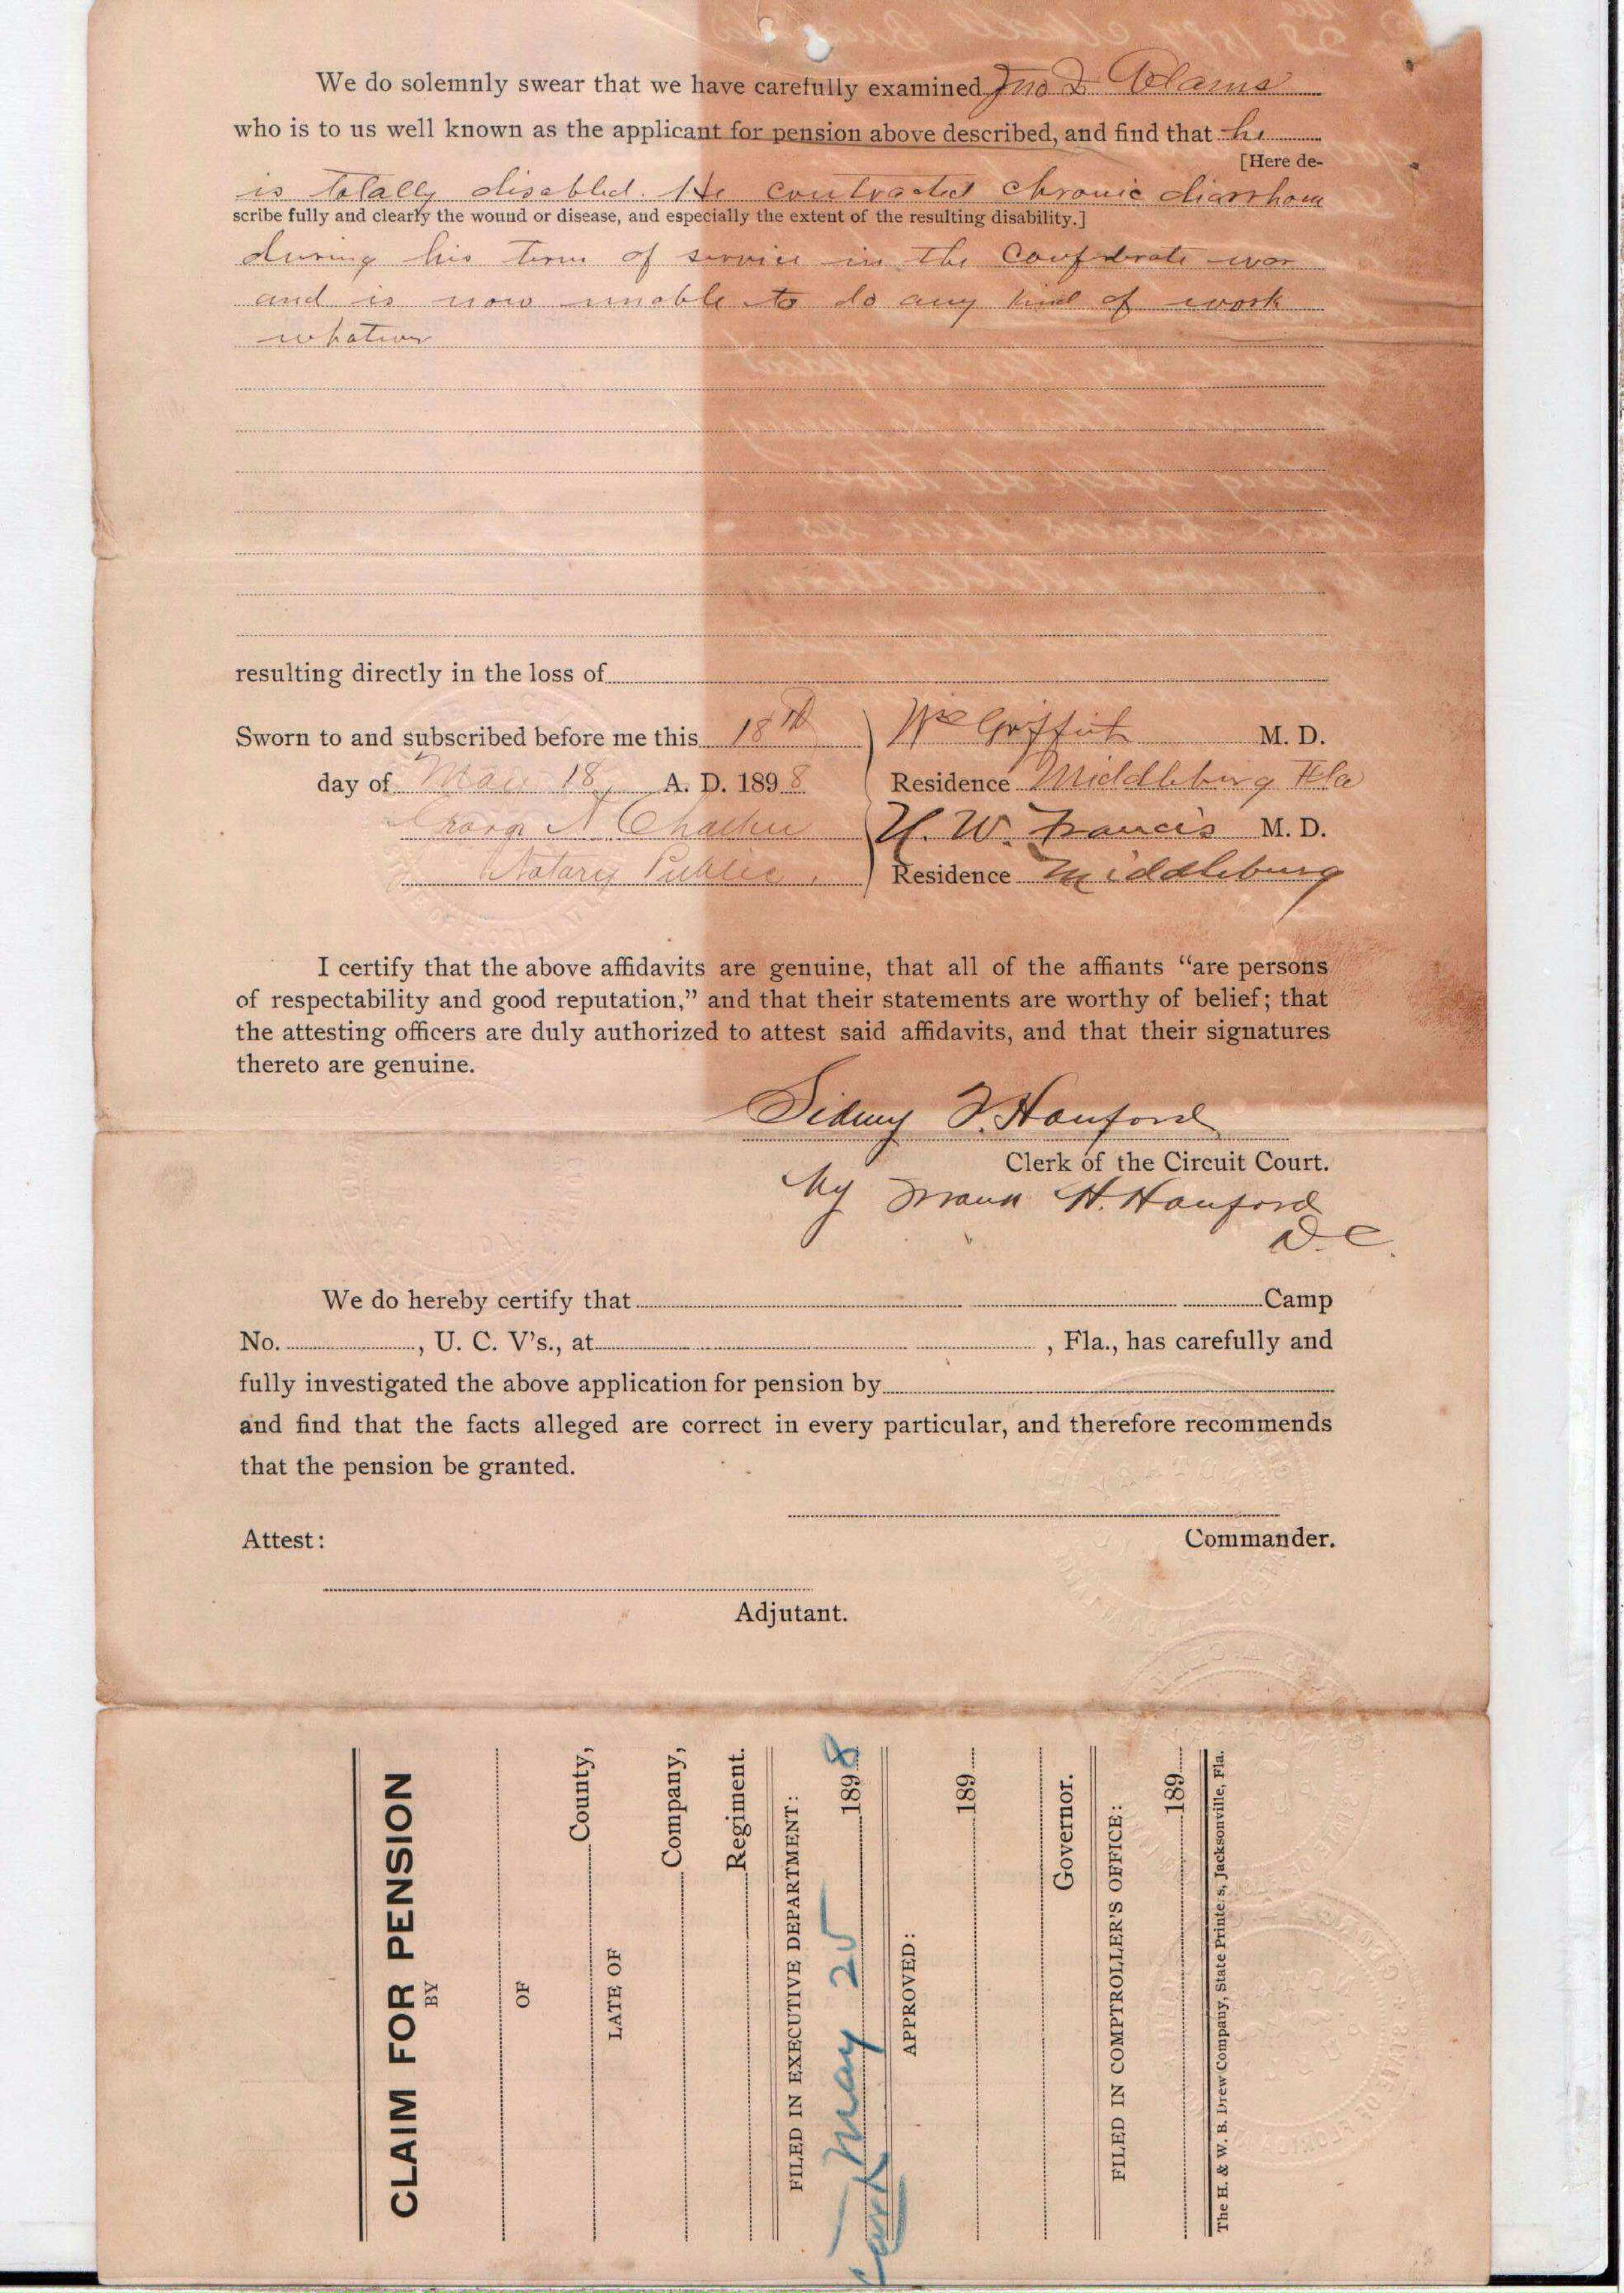 We do solemnly swear that we have carefully examined Jno Adams
who is to us well known as the applicant for pension above described, and find that he
[Here de-
is totally disabled. He contracted chronic diarrhoea
scribe fully and clearly the wound or disease, and especially the extent of the resulting disability.]
during his term of service in the Confederate war
and is now unable to do any kind of work
whatever
resulting directly in the loss of
Sworn to and subscribed before me this 18th Griffith M. D.
day of May 18 A. D. 1898 Residence Middleburg Fla
N. Chalker W. Francis M. D.
Notary Public. Residence Middleburg
I certify that the above affidavits are genuine, that all of the affiants “are persons
of respectability and good reputation,” and that their statements are worthy of belief; that
the attesting officers are duly authorized to attest said affidavits, and that their signatures
thereto are genuine.
Sidney Hanford
Clerk of the Circuit Court.
By Frank H. Hanford
D. C.
We do hereby certify that Camp
No. , U. C. V's., at , Fla., has carefully and
fully investigated the above application for pension by
and find that the facts alleged are correct in every particular, and therefore recommends
that the pension be granted.
Attest: Commander.
Adjutant.
CLAIM FOR PENSION
BY
OF
County,
LATE OF
Company,
Regiment.
FILED IN EXECUTIVE DEPARTMENT:
May 25 1898
APPROVED:
189
Governor.
FILED IN COMPTROLLER'S OFFICE:
189
The H. & W. B. Drew Company, State Printers, Jacksonville, Fla.